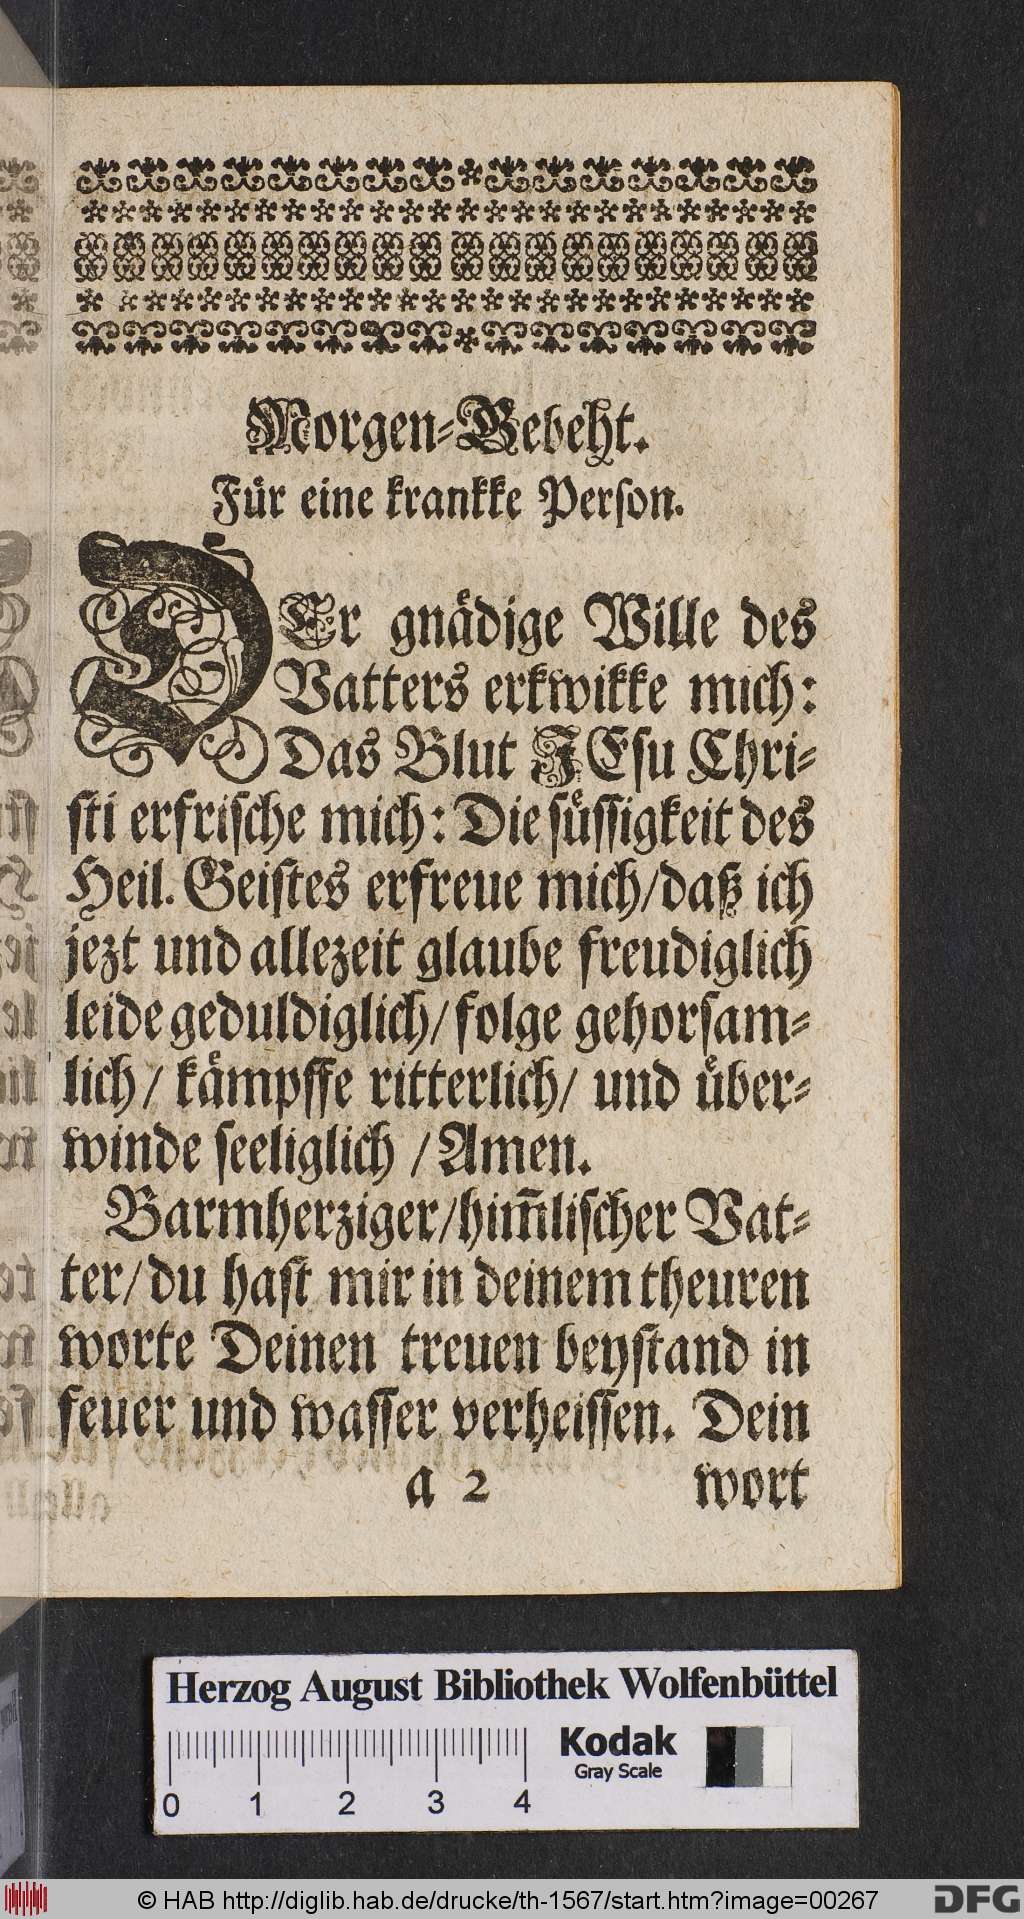 Morgen-Gebeht.
Für eine krankke Person.
DEr gnädige Wille des
Vatters erkwikke mich:
Das Blut JEsu Chri-
sti erfrische mich: Die süssigkeit des
Heil. Geistes erfreue mich/daß ich
jezt und allezeit glaube freudiglich
leide geduldiglich/folge gehorsam-
lich/ kämpffe ritterlich/ und über-
winde seeliglich /Amen.
Barmherziger/him̃lischer Vat-
ter/du hast mir in deinem theuren
worte Deinen treuen beystand in
feuer und wasser verheissen. Dein
a 2 wort
Herzog August Bibliothek Wolfenbüttel
Kodak
Gray Scale
0 1 2 3 4
© HAB http://diglib.hab.de/drucke/th-1567/start.htm?image=00267
DFG